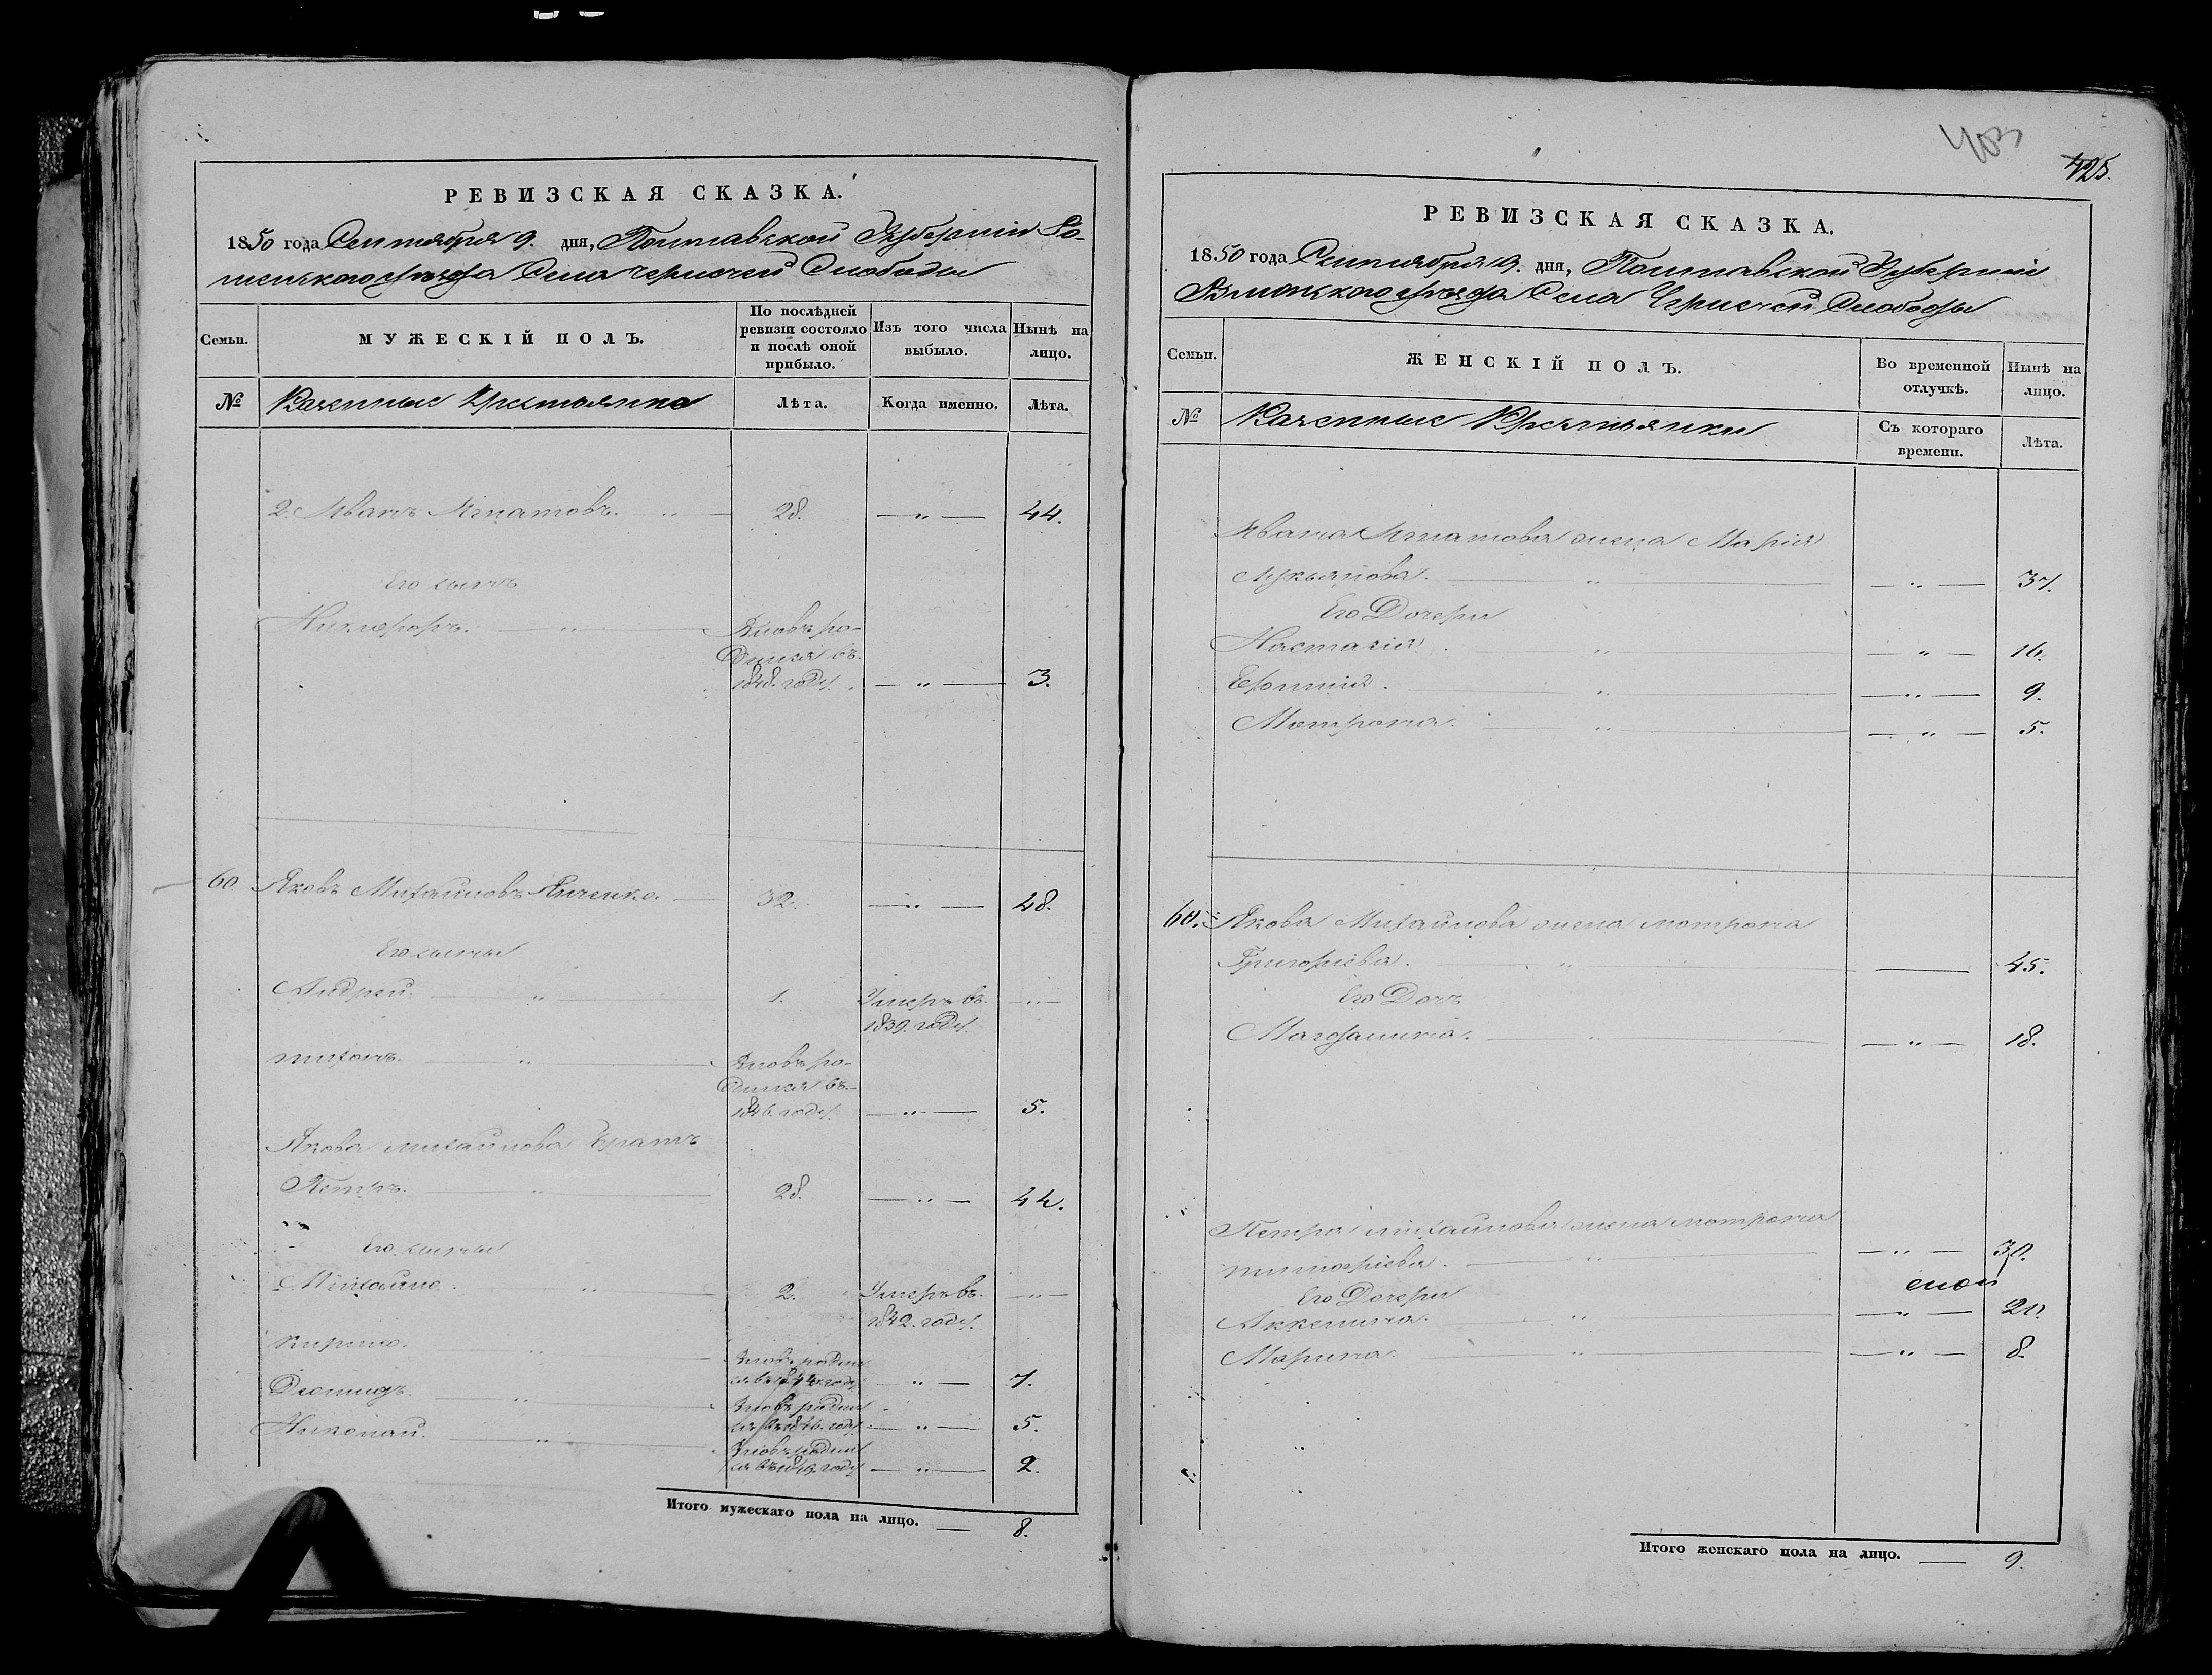 403
425.
РЕВИЗСКАЯ СКАЗКА.
1850 года Сентября 9. дня, Полтавской Губерніи Ро-
менского уѣзда Села Чернечей Слободы
Семьи.
МУЖЕСКІЙ ПОЛЪ.
По послѣдней ревизіи состояло и послѣ оной прибыло.
Изъ того числа выбыло.
Нынѣ на лицо.
№
Казенные Крестьяне
Лѣта.
Когда именно.
Лѣта.
2. Иванъ Игнатовъ. — „ — 28. — „ — 44.
Его сынъ
Никифоръ. — „ — Вновь ро-
дился въ
1848. году. — „ — 3.
60. Яковъ Михайловъ — 32. — „ — 48.
Его сыны
Андрей. — „ — 1. Умеръ въ — „ —
1839. году.
Тихонъ. — „ — Вновь ро-
дился въ
1846. году. — „ — 5.
Якова Михайлова братъ
Петръ. — „ — 28. — „ — 44.
Его сыны
Михайло. — „ — 2. Умеръ въ — „ —
1842. году.
Кирило. — „ — Вновь родил
ся въ 1844. году — „ — 7.
Леонидъ. — „ — Вновь родил
ся въ 1846. году — „ — 5.
Николай. — „ — Вновь родил
ся въ 1849. году — „ — 2.
Итого мужескаго пола на лицо. — 8.
РЕВИЗСКАЯ СКАЗКА.
1850 года Сентября 9. дня, Полтавской Губерніи
Роменского уѣзда Села Чернечей Слободы
Семьи.
ЖЕНСКІЙ ПОЛЪ.
Во временной отлучкѣ.
Нынѣ на лицо.
№
Казенные Крестьянки
Съ котораго времени.
Лѣта.
Ивана Игнатова жена Марія
Лукьянова. — „ — — „ — 37.
Его Дочери
Настасія. „ — „ — 16.
Ефимія. — „ — — „ — 9.
Мотрона. — „ — — „ — 5.
60. Якова Михайлова жена Мотрона
Григоріева. — „ — — 45.
Его Дочь
Магдалина. — „ — — „ — 18.
Петра Михайлова жена Мотрона
— „ — — „ — 30.
Его Дочери
Аксенина. — „ — — „ — 20.
Марина. — „ — — „ — 8.
Итого женскаго пола на лицо. — 9.